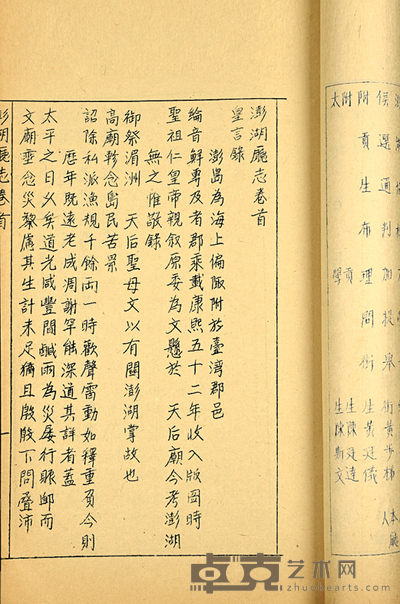 澎湖廳志卷首
皇言錄
澎島為海上偏陬附於臺灣郡邑
綸音鮮專及者郡乘載康熙五十二年收入版圖時
聖祖仁皇帝親敘原委為文懸於 天后廟今考澎湖
無之惟敬錄
御祭湄洲 天后聖母文以有關澎湖掌故也
高廟軫念島民苦累
詔除私派漁規千餘兩一時歡聲雷動如釋重負今則
歷年既遠老成凋謝罕能深道其詳者蓋
太平之日久矣道光咸豐間鹹雨為災屢行賑卹而
文廟垂念災黎慮其生計未足猶且殷殷下問疊沛
澎湖廳志卷首
候選通判
附貢生布理問銜
附貢
太學
生黃廷儀
生陳廷達
生陳斯文
卓克艺术网
www.zhuokearts.com